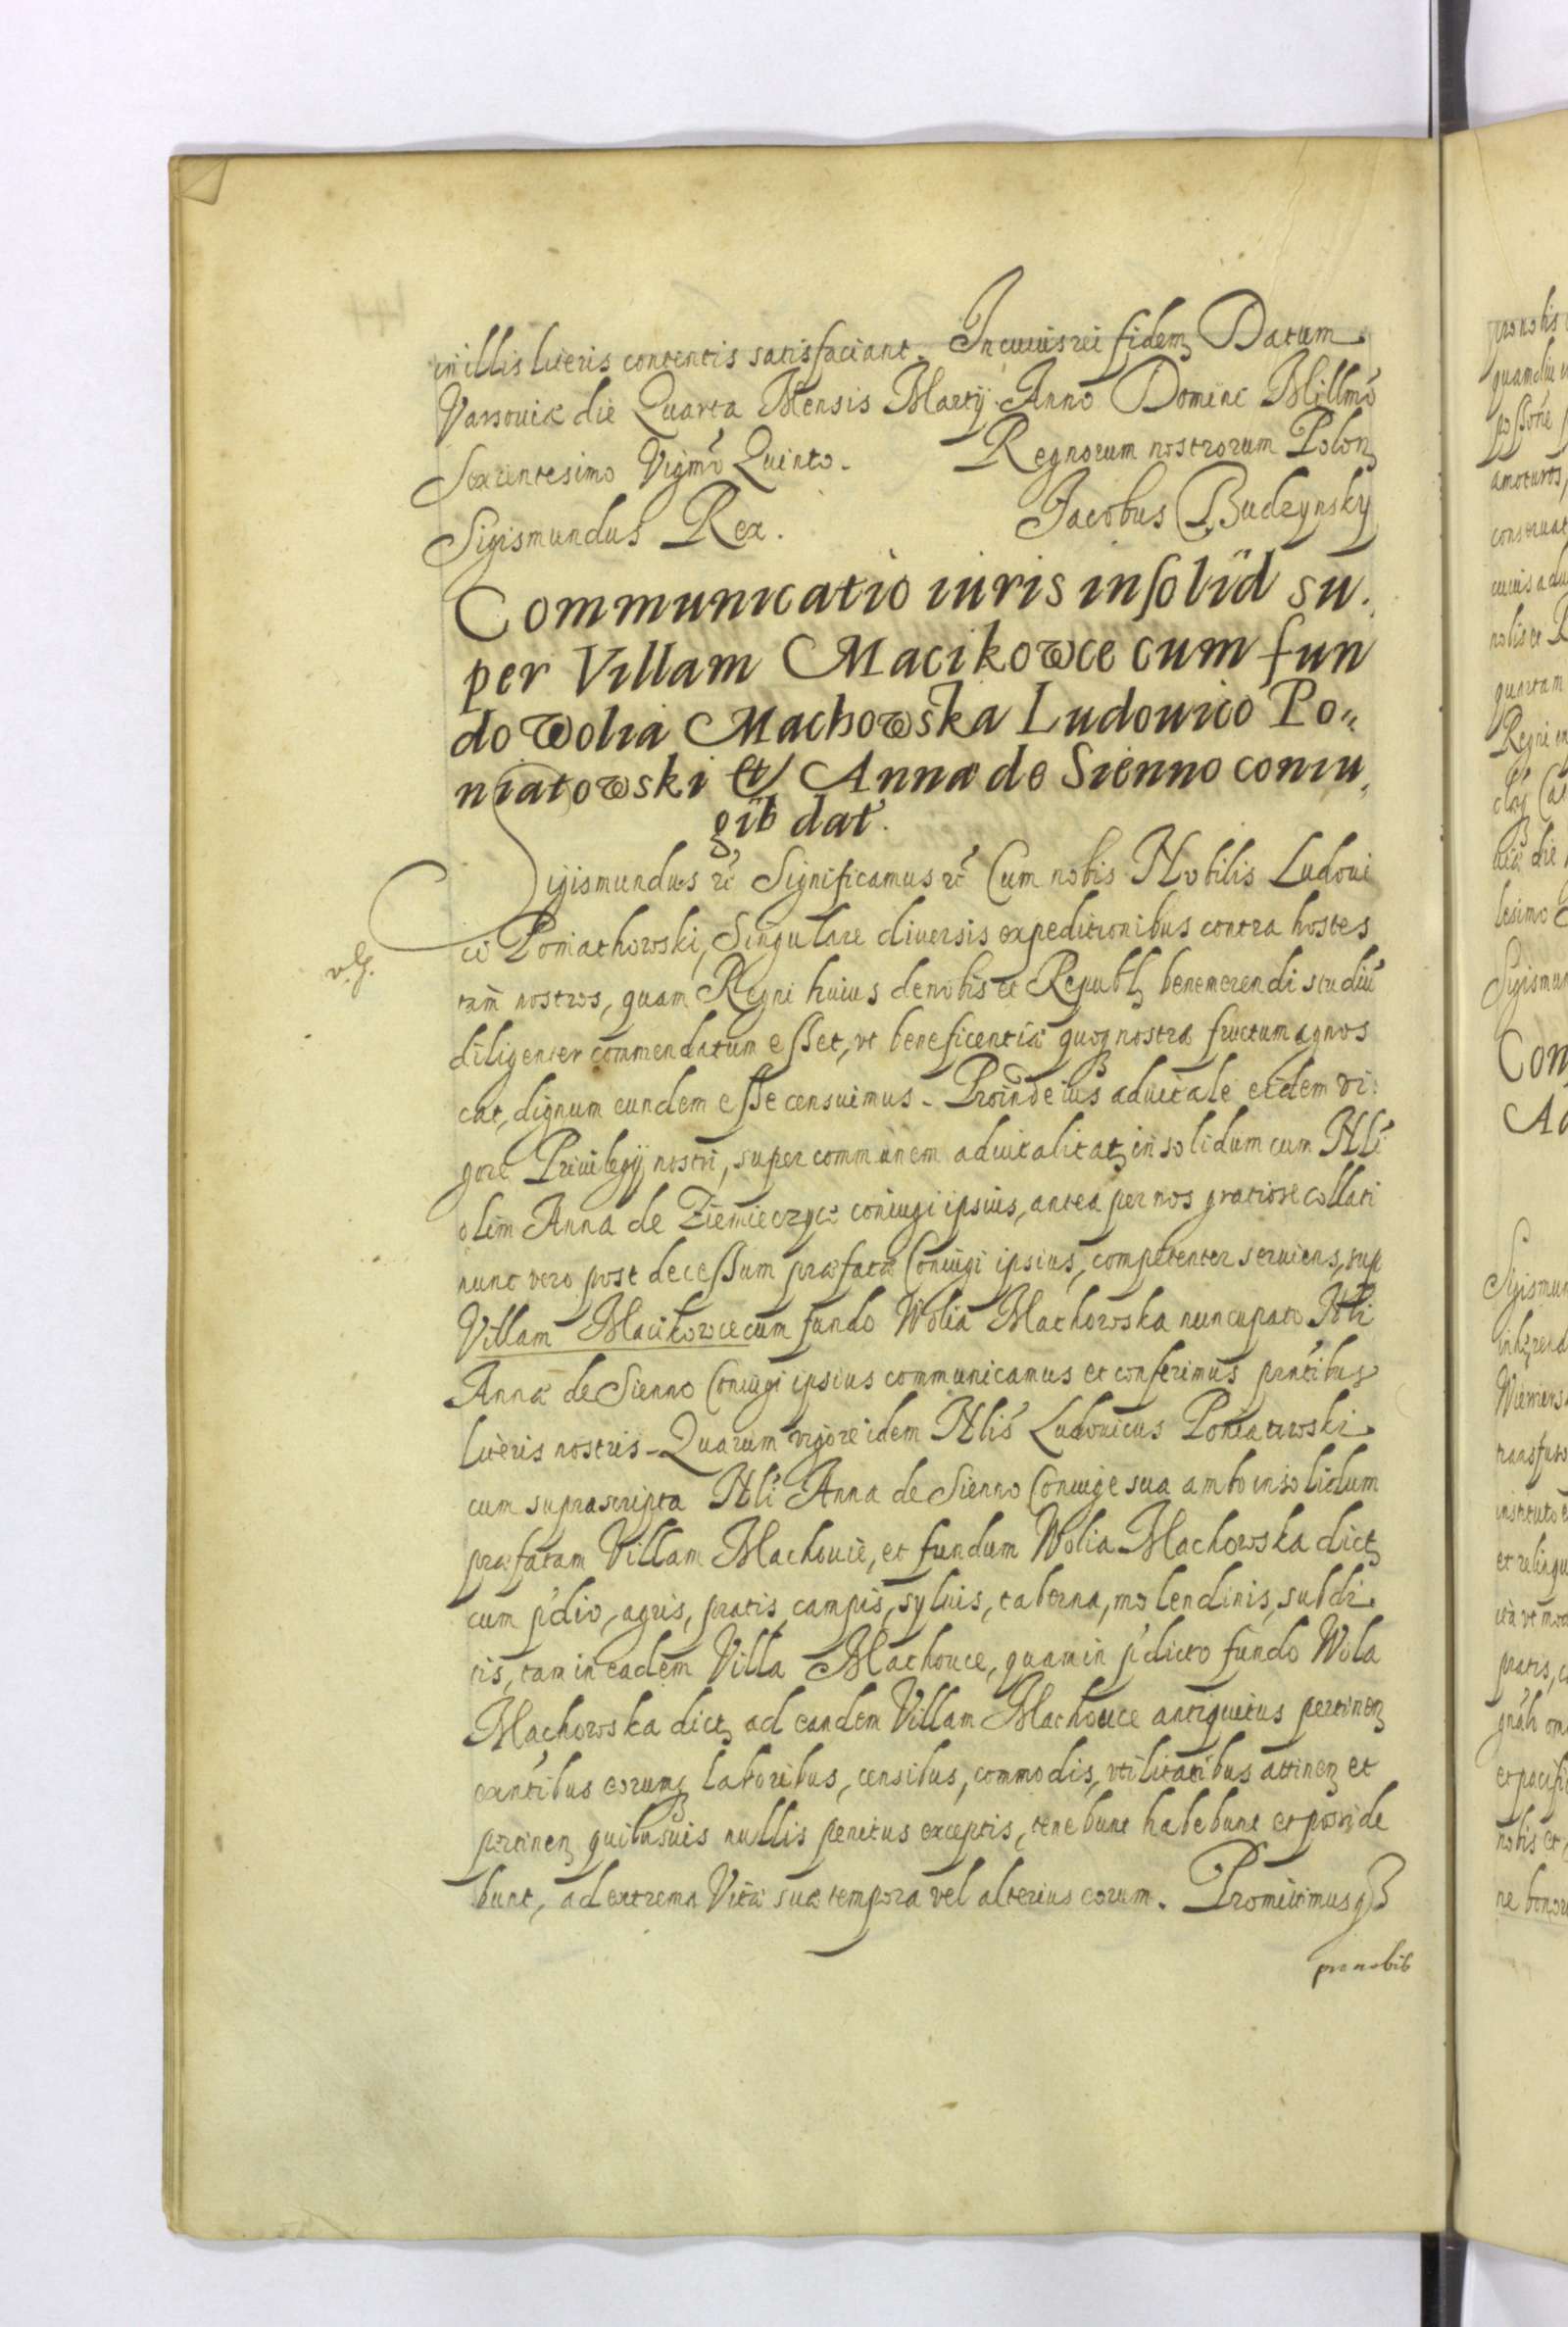 in illis literis contentis satisfaciant. In cuius rei fidem Datum
Varsoviæ die Quarta Mensis Martij Anno Domini Millmo
Sexcentesimo Vigmo Quinto. Regnorum nostrorum Polon
Sigismundus Rex. Jacobus Budzynsky
Communicatio iuris insolid su.
per Villam Macikowce cum fun
do Wolia Machowska Ludouico Po„
niatowski et Annæ de Sienno coniu,
gib dat.
Sigismundus etc Significamus etc Cum nobis Nobilis Ludoui
ci Poniathowski, Singulare diuersis expeditionibus contra hostes
tam nostros, quam Regni huius de nobis et Republ benemerendi studiu
diligenter commendatum esset, vt beneficentiæ quoq nostræ fructum agnos
cat, dignum eundem esse censuimus. Proinde ius aduitale eidem vi:
gore Priuilegij nostri, super communem aduitalitat in solidum cum Nli
olim Anna de Ziemieczyce coniugi ipsius, antea per nos gratiose collati
nunc vero post decessum præfatæ Coniugi ipsius, competenter seruiens, sup
Villam Macikowce cum fundo Wolia Machowska nuncupato Nli
Annæ de Sienno Coniugi ipsius communicamus et conferimus prntibus
literis nostris. Quarum vigore idem Nlis Ludouicus Poniatowski
cum suprascripta Nli Anna de Sienno Coniuge sua ambo insolidum
præfatam Villam Machouice, et fundum Wolia Machowska dict
cum p'dio, agris, pratis, campis, syluis, taberna, molendinis, subdi
tis, tam in eadem Villa Machouce, quam in p'dicto fundo Wola
Machowska dict ad eandem Villam Machouce antiquitus pertinen
exntibus eorumq laboribus, censibus, commodis, vtilitatibus attinen et
pertinen quibusuis nullis penitus exceptis, tenebunt habebunt et posside
bunt, ad extrema Vitæ suæ tempora vel alterius eorum. Promittimusq
pro nobis